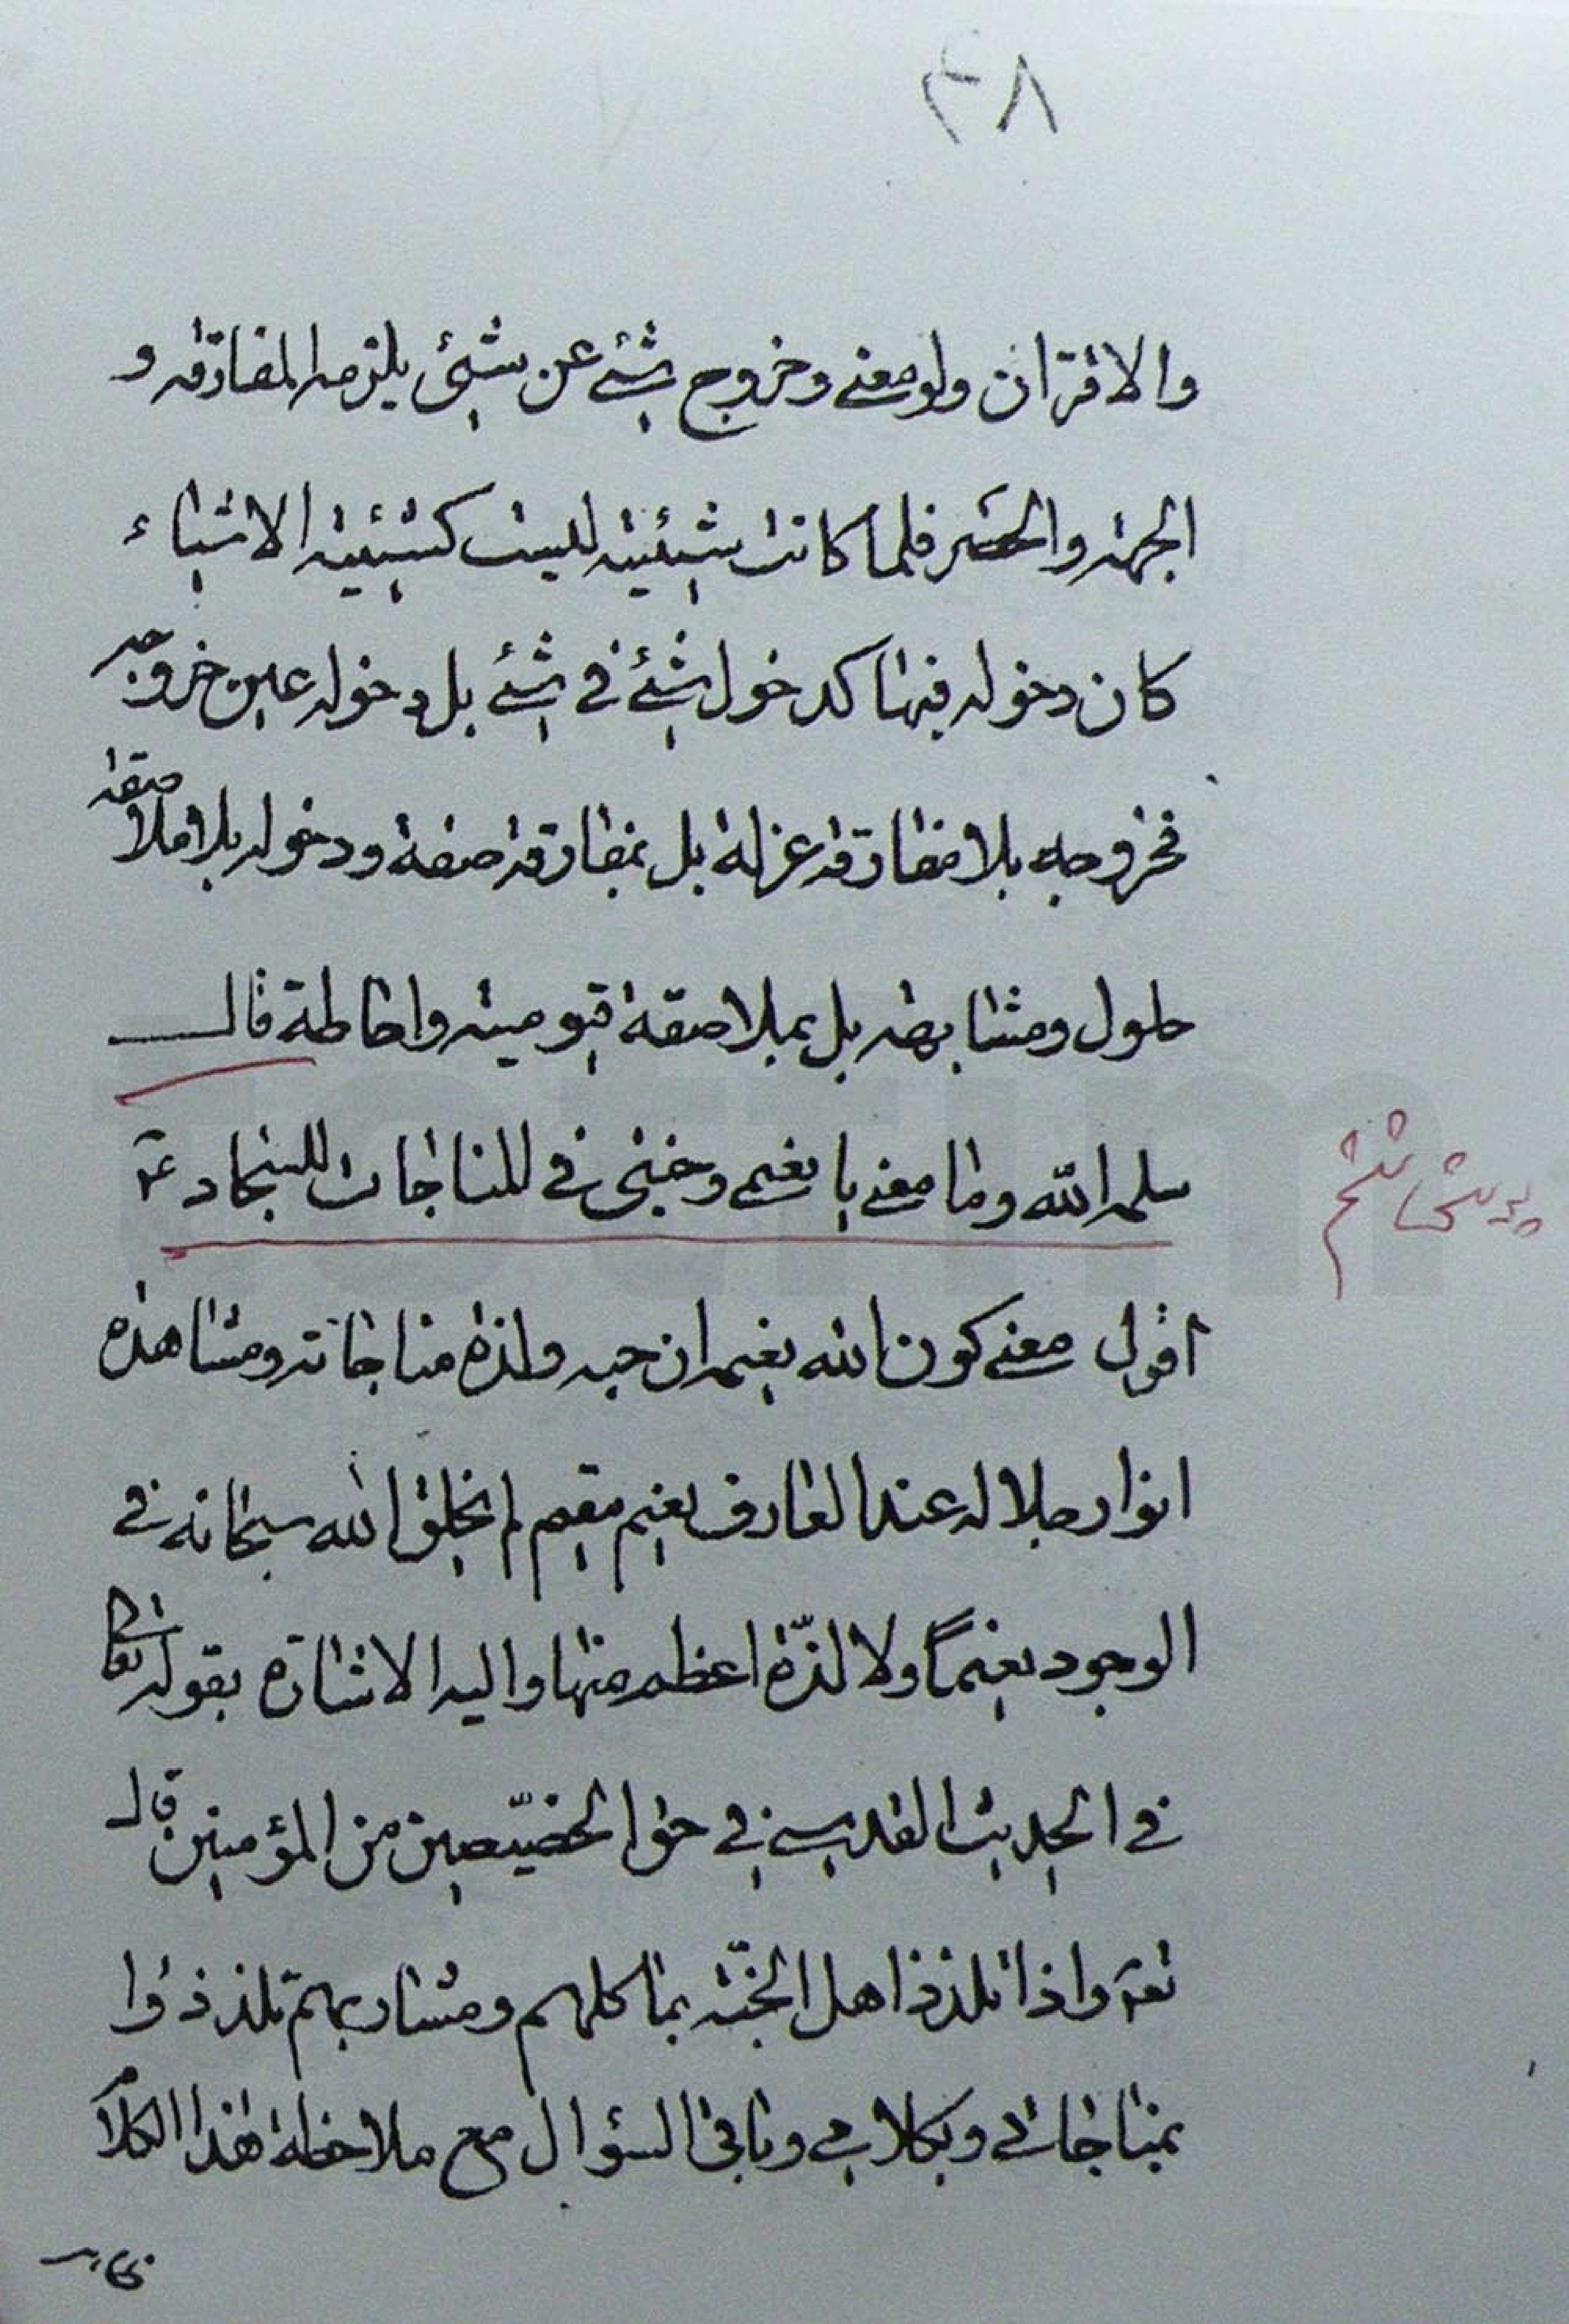 ٣٨
والاقتران ولو معنے وخروج شئے عن شیئ یلزمه المفارقه و
الجهته والحصر فلما كانت شیئیته لیست كشیئیته الاشیاء
كان دخوله فیها كدخول شئے فے شئے بل دخوله عین خروجه
فخروجه بلا مفارقه عزلة بل بمفارقة صفة ودخوله بلا ملاصقة
حلول ومشابهه بل بملاصقة قیومیته واحاطة قال
سلمه الله وما معنے یا نعیمی وجنتی فے المناجات للسجاد ع
اقول معنے كون الله نعیمه ان حبه ولذة مناجاته ومشاهدة
انوار جلاله عند العارف نعیم مقیم لم یخلق الله سبحانه فے
الوجود نعیماً ولا لذّة اعظم منها والیه الاشارة بقوله تعالی
فے الحدیث القدسے فے حق الخصّیصین من المؤمنین قال
تع واذا تلذذ اهل الجنّة بمأكلهم ومشاربهم تلذذوا
بمناجاتے وبكلامے وباقی السؤال مع ملاحظة هذا الكلام
پرسش ششم